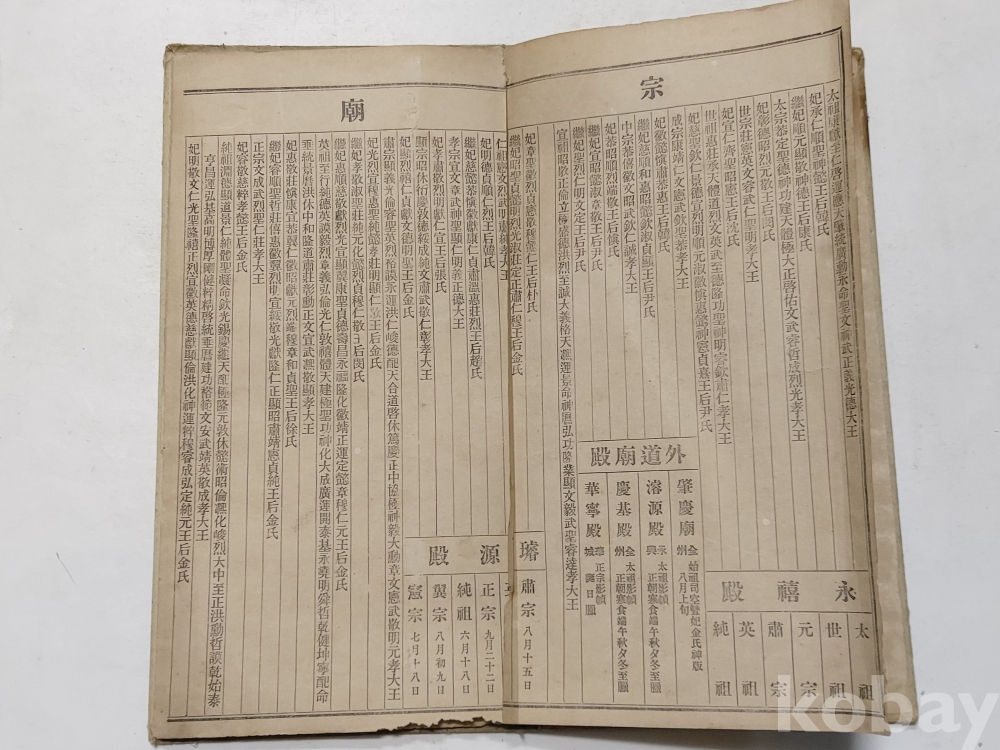 宗
太祖康獻至仁啓運應天肇統廣勳永命聖文神武正義光德大王
妃承仁順聖神懿王后韓氏
繼妃順元顯敬神德王后康氏
太宗恭定聖德神功建天體極大正啓佑文武睿哲成烈光孝大王
妃彰德昭烈元敬王后閔氏
世宗莊憲英文睿武仁聖明孝大王
妃宣仁齊聖昭憲王后沈氏
世祖惠莊承天體道烈文英武至德隆功聖神明睿欽肅仁孝大王
妃慈聖欽仁景德宣烈明順元淑徽愼惠懿神憲貞熹王后尹氏
成宗康靖仁文憲武欽聖恭孝大王
妃徽懿愼肅恭惠王后韓氏
繼妃慈順和惠昭懿欽淑貞顯王后尹氏
中宗恭僖徽文昭武欽仁誠孝大王
妃恭昭順烈端敬王后愼氏
繼妃宣昭懿淑章敬王后尹氏
繼妃聖烈仁明文定王后尹氏
宣祖昭敬正倫立極盛德洪烈至誠大義格天熙運景命神曆弘功隆業顯文毅武聖睿達孝大王
外道廟殿
肇慶廟 全州 始祖司空曁妃金氏神版 八月上旬
濬源殿 永興 太祖影幀 正朝寒食端午秋夕冬至臘
慶基殿 全州 太祖影幀 正朝寒食端午秋夕冬至臘
華寧殿 華城 正宗影幀 誕日臘
永禧殿
太祖
世祖
元宗
肅宗
英祖
純祖
妃章聖徽烈貞憲敬穆懿仁王后朴氏
繼妃昭聖貞懿明烈光淑莊定正肅仁穆王后金氏
璿源殿
肅宗 八月十五日
正宗 九月二十二日
純祖 六月十八日
翼宗 八月初九日
憲宗 七月十八日
廟
妃明德貞順仁烈王后韓氏
繼妃慈懿恭愼徽獻康仁貞肅溫惠莊烈王后趙氏
孝宗宣文章武神聖顯仁明義正德大王
妃孝肅貞烈明獻仁宣王后張氏
顯宗昭休衍慶敦德綏成純文肅武敬仁彰孝大王
妃顯烈禧仁貞獻文德明聖王后金氏
肅宗顯義光倫睿聖英烈裕謨永運洪仁峻德配天合道啓休篤慶正中協極神毅大勳章文憲武敬明元孝大王
妃光烈宣穆惠聖純懿孝莊明顯仁敬王后金氏
繼妃孝敬淑聖莊純元化懿烈貞穆仁顯王后閔氏
繼妃惠順慈敬獻烈光宣顯翼康聖貞德壽昌永福隆化徽靖正運定懿章穆仁元王后金氏
英祖至行純德英謨毅烈章義弘倫光仁敦禧體天建極聖功神化大成廣運開泰基永堯明舜哲乾健坤寧配命
垂統景曆洪休中和隆道肅莊彰勳正文宣武熙敬顯孝大王
妃惠敬莊愼康宣恭翼仁徽昭獻元烈端穆章和貞聖王后徐氏
繼妃睿順聖哲莊僖惠徽翼烈明宣綏敬光獻隆仁正顯昭肅靖憲貞純王后金氏
正宗文成武烈聖仁莊孝大王
妃睿敬慈粹孝懿王后金氏
純祖淵德顯道景仁純禧體聖凝命欽光錫慶繼天配極隆元敦休懿行昭倫熙化峻烈大中至正洪勳哲謨乾始泰
亨昌運弘基高明博厚剛健粹精啓統垂曆建功裕範文安武靖英敬成孝大王
妃明敬文仁光聖隆禧正烈宣徽英德慈獻顯倫洪化神運粹穆睿成弘定純元王后金氏